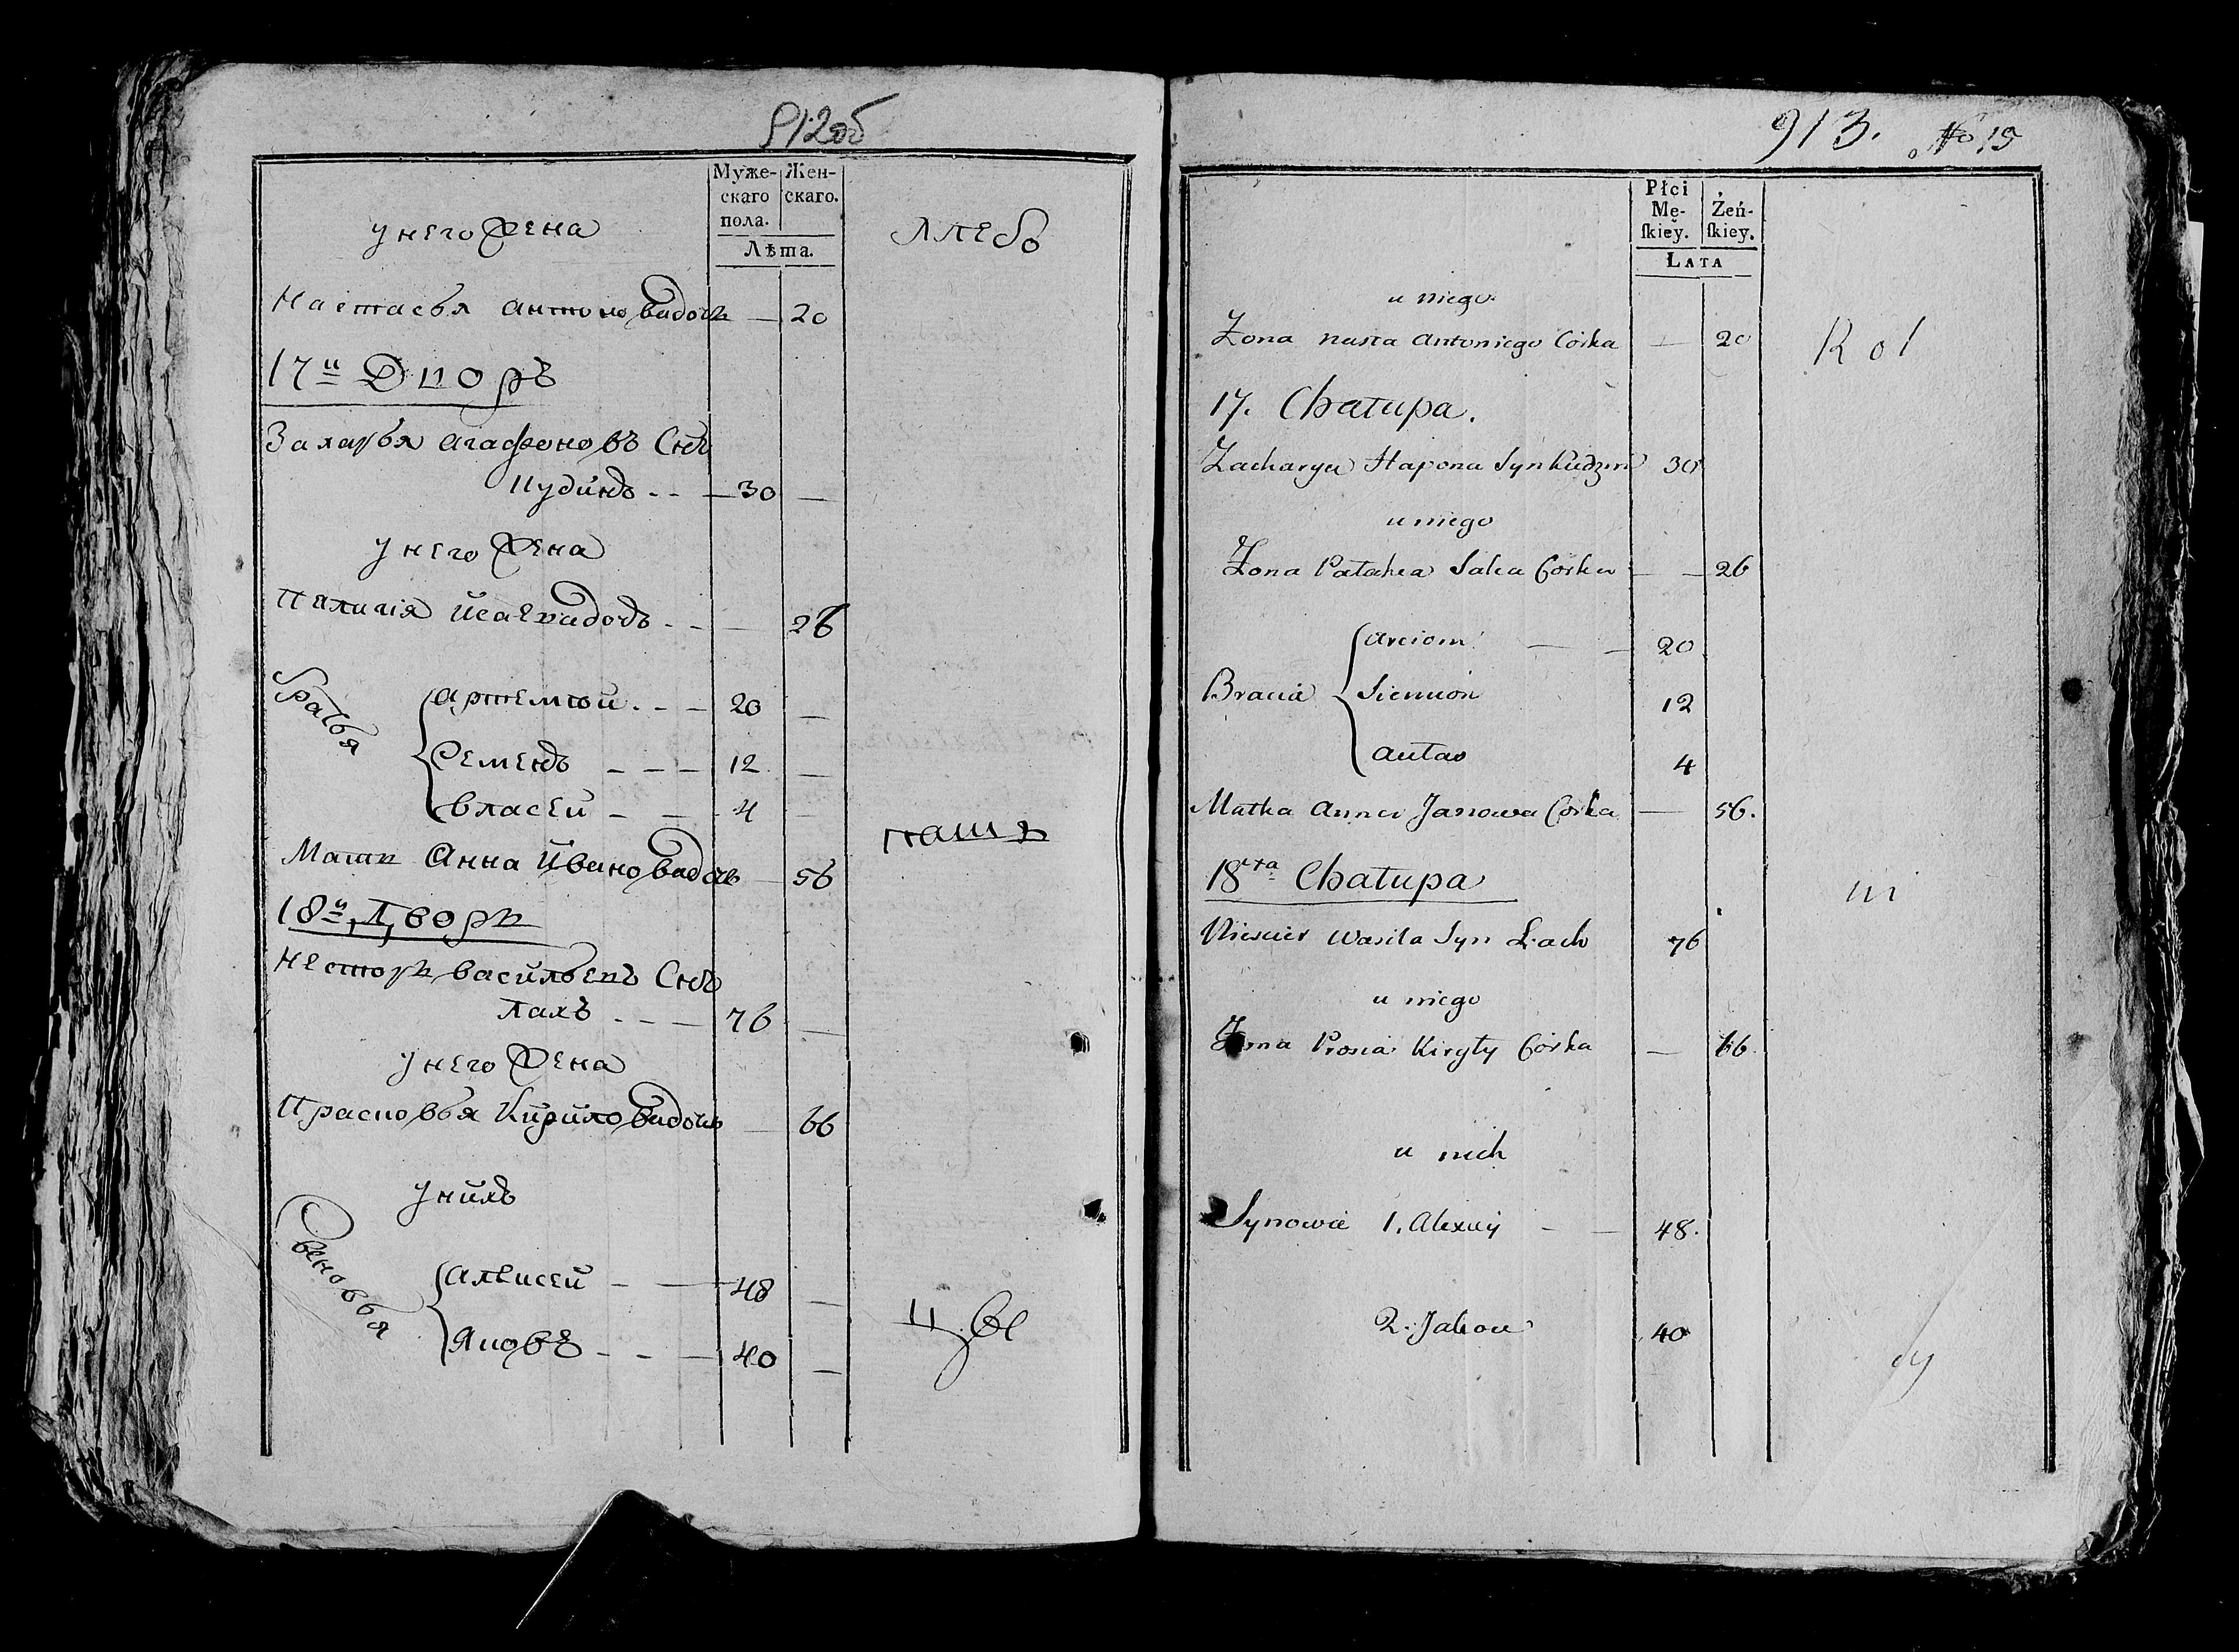 912об
Муже-
скаго
пола.
Жен-
скаго.
Лѣта.
у него жена
хлебо
Настасья Антонова дочь — 20
17й Дворъ
Захарья Агафоновъ Снъ
Кудинъ - - — 30 —
у него жена
Палагія Исаева дочь - - — 26
братья
Артемюй. - - — 20 —
Семенъ - - — 12 —
Власей - — - 4 —
пашъ
Мать Анна Иванова дочь — 56
18й Дворъ
Несторъ Васильевъ Снъ
Лахъ - - — 76 —
у него жена
Прасковья Кирилова дочь — 66
у нихъ
Сыновья
Алексей - — 48 —
Яковъ - - — 40 —
913. No 15
Płci
Mę-
skiey.
Żeń-
skiey.
LATA
u niego
Żona Nasta Antoniego Córka — 20
Rol
17. Chałupa.
Zacharyu Hapona Syn Kudzin 30
u niego
Żona Pałahea Saka Córka — — 26
Arciom — — 20
Bracia Siemion 12
Autas 4
Matka Anna Janowa Córka — 56.
18sta Chałupa
ni
Niescier Wasila Syn Lach 76
u niego
Żona Prosia Kiryły Córka — 66.
u nich
Synowie 1. Alexiey - — 48.
2. Jakow 40
cy